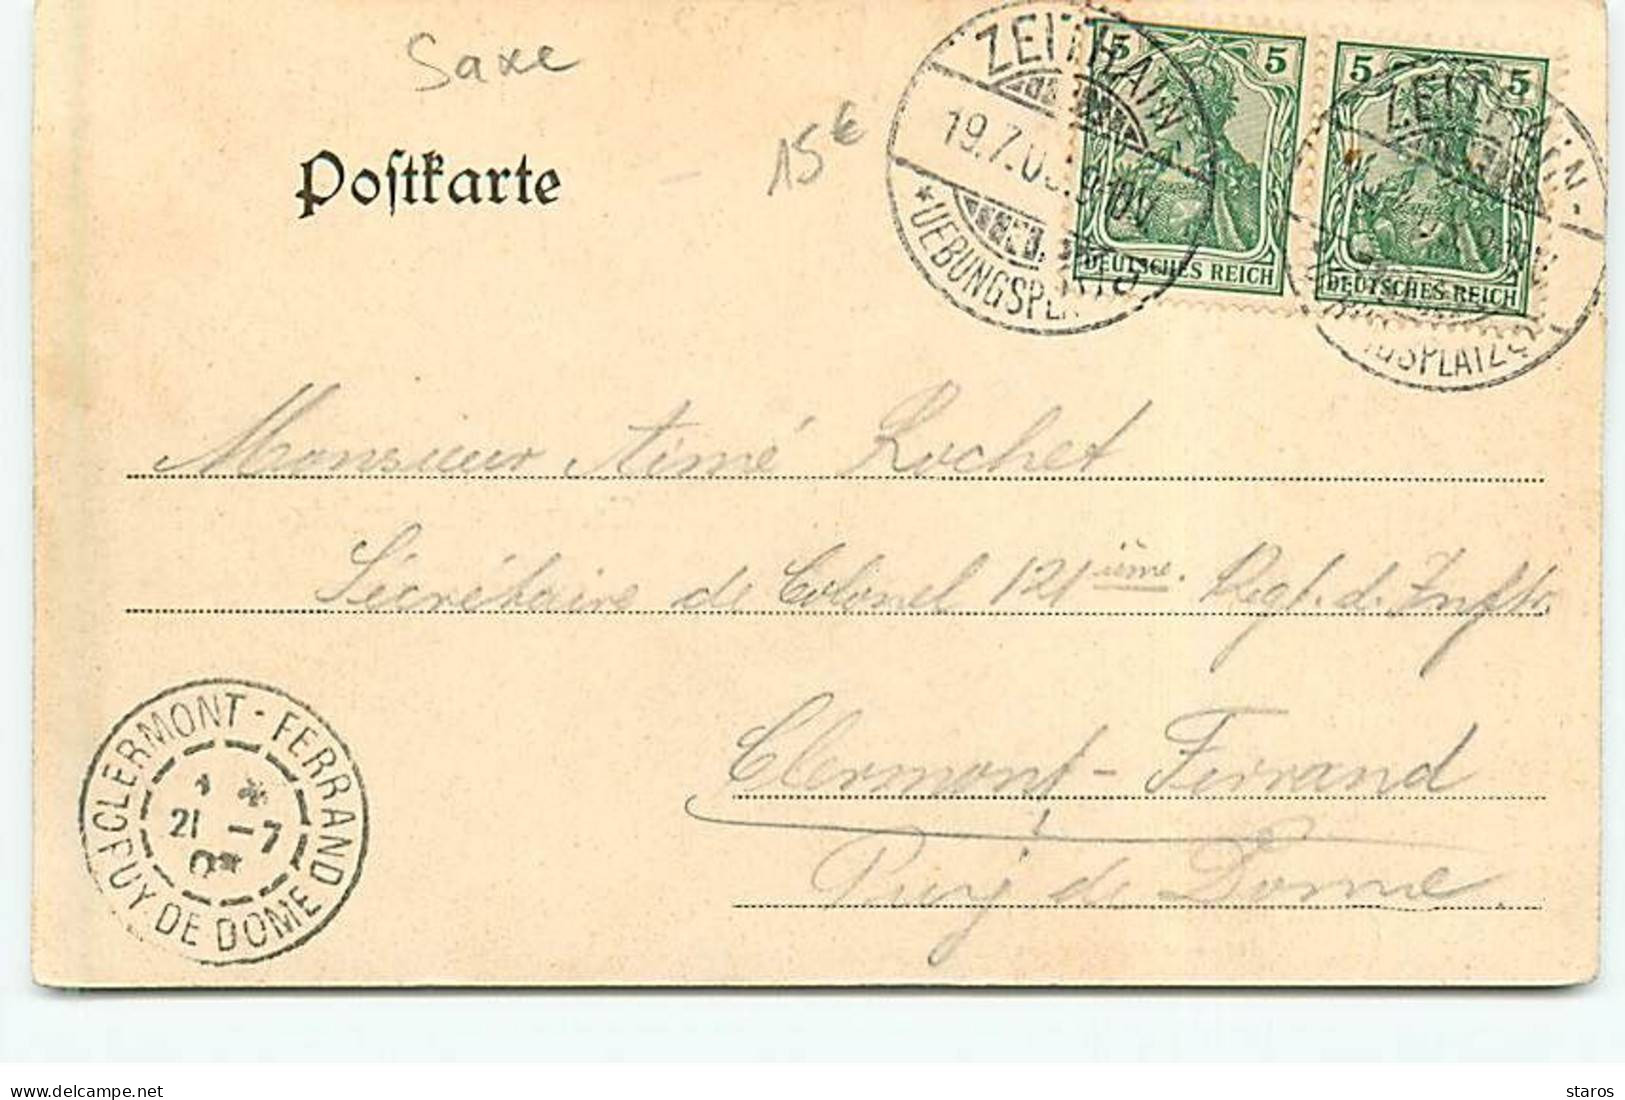 Saxe
Postkarte
15€
ZEITHAIN
19.7.0
*UEBUNGSPL
5 5
DEUTSCHES REICH
5 5
DEUTSCHES REICH
ZEITHAIN-
Monsieur Aimé Rochet
Sécrétaire de Colonel 121ième. Regt. d. Inftr.
Clermont-Ferrand
Puy de Dome
CLERMONT-FERRAND
21 -7
PUY-DE DOME
staros